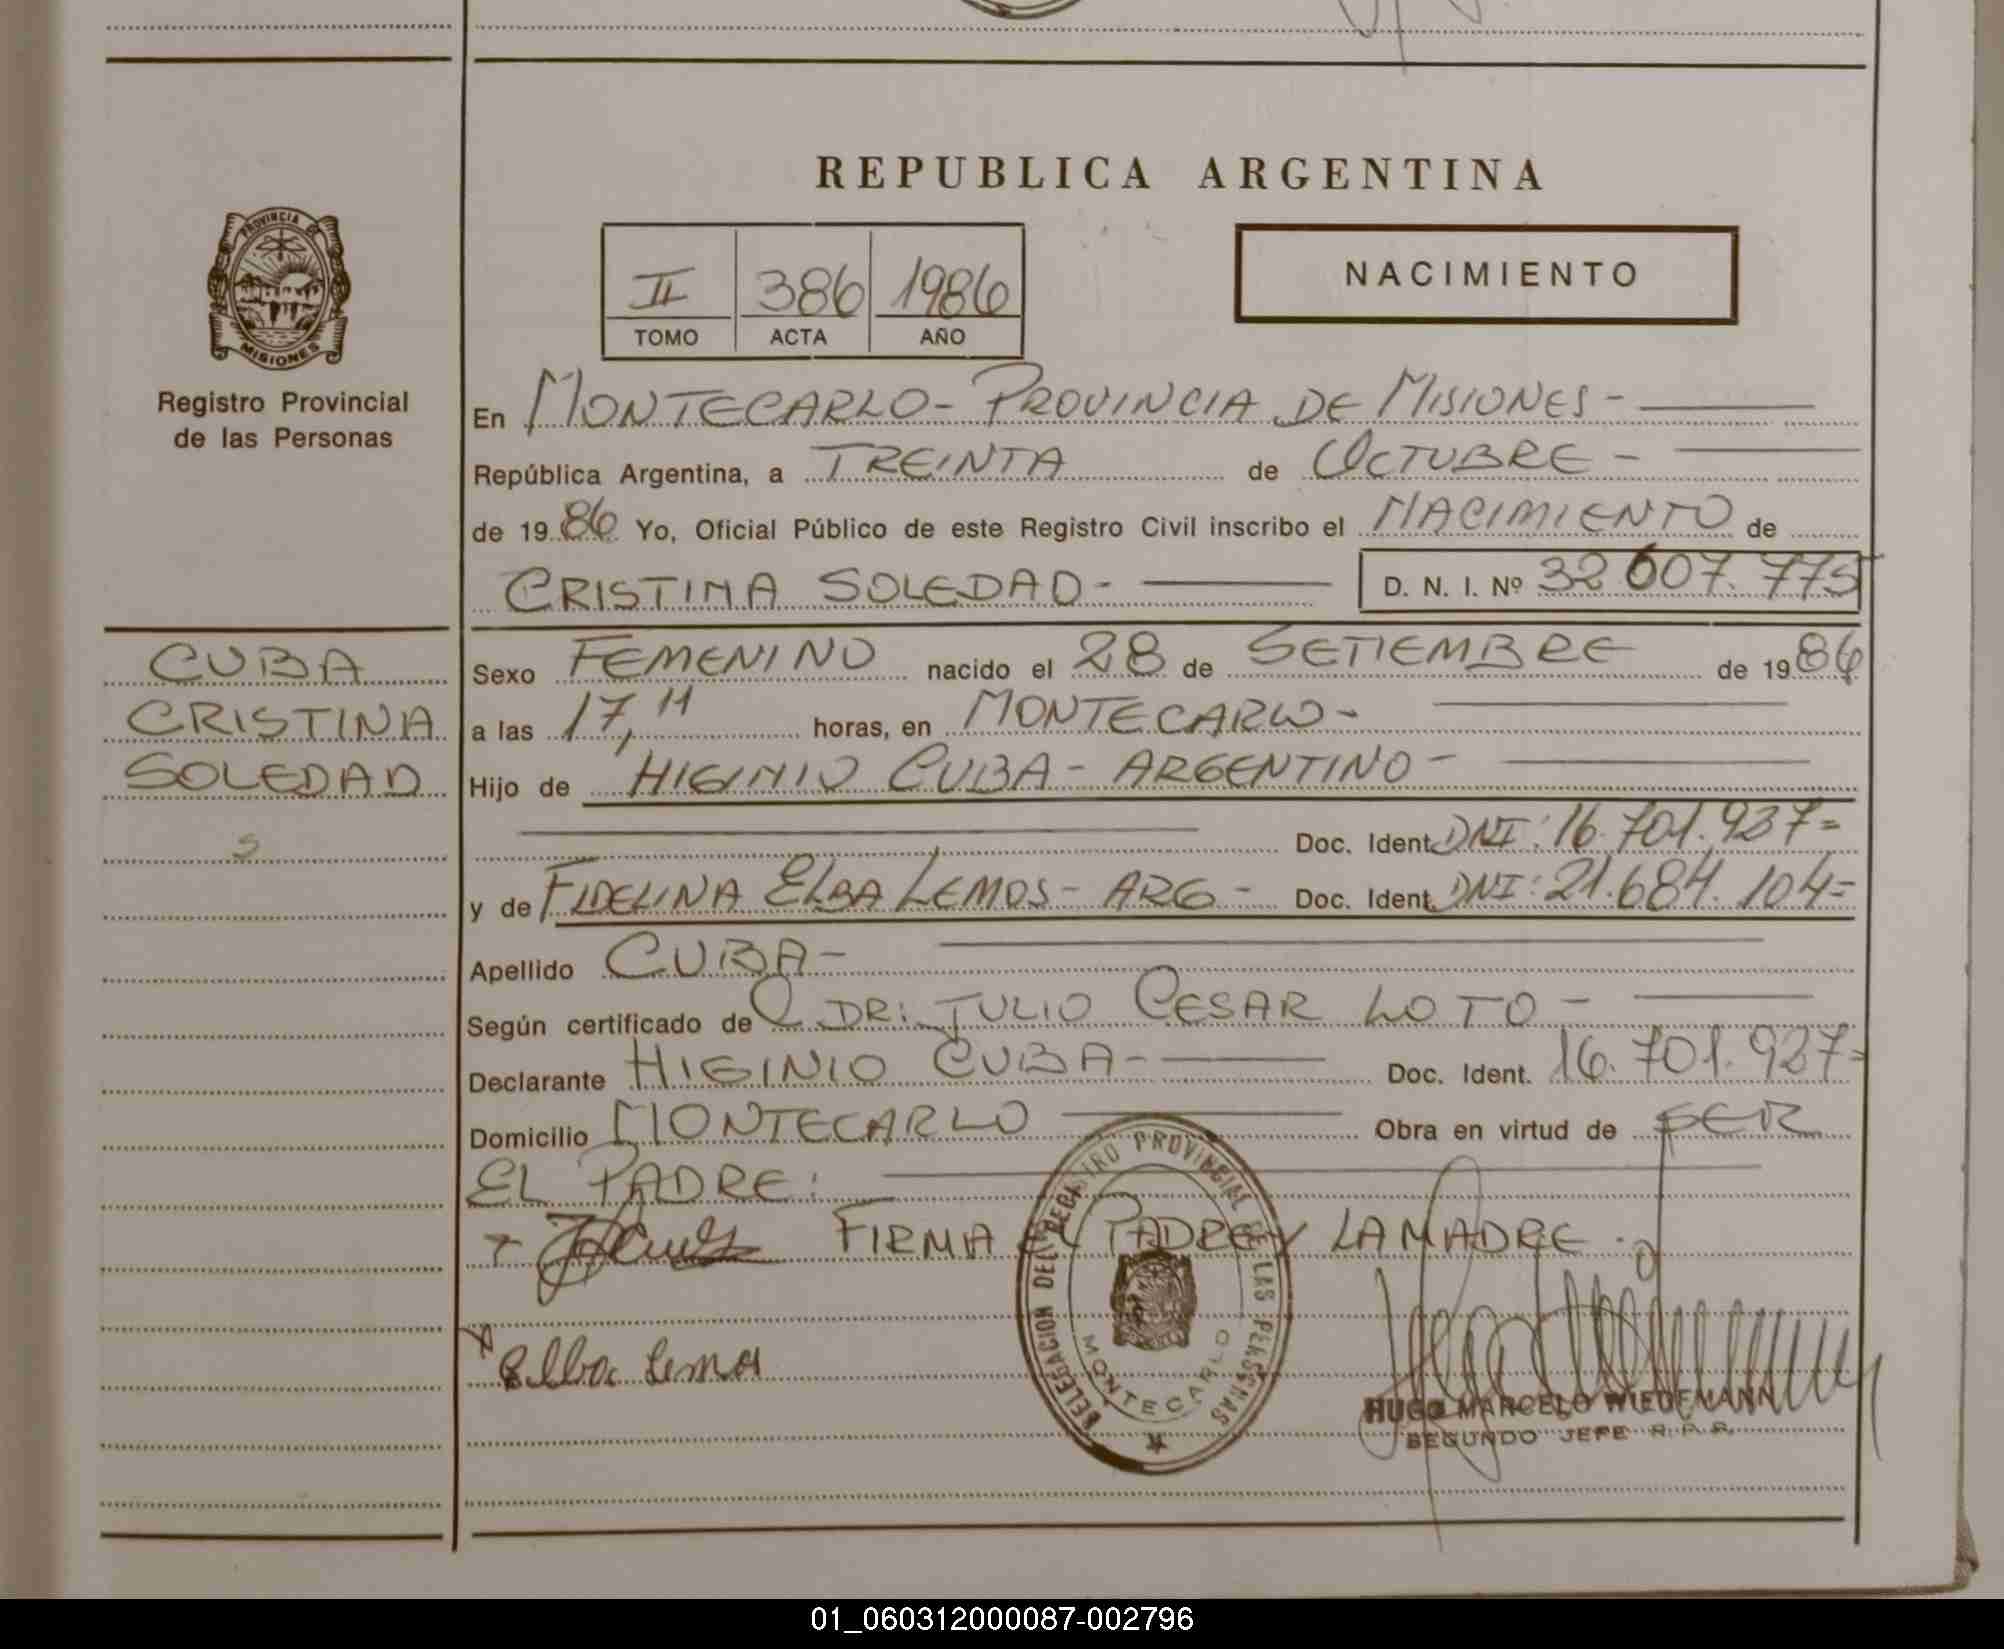 REPUBLICA ARGENTINA
PROVINCIA DE
MISIONES
Registro Provincial
de las Personas
II 386 1986
TOMO ACTA AÑO
NACIMIENTO
En MONTECARLO - PROVINCIA DE MISIONES -
República Argentina, a TREINTA de OCTUBRE -
de 1986 Yo, Oficial Público de este Registro Civil inscribo el NACIMIENTO de
CRISTINA SOLEDAD - D. N. I. Nº 32 607.775
CUBA
CRISTINA
SOLEDAD
S
Sexo FEMENINO nacido el 28 de SETIEMBRE de 1986
a las 17,11 horas, en MONTECARLO -
Hijo de HIGINIO CUBA - ARGENTINO -
Doc. Ident. DNI: 16.701.937=
y de FIDELINA ELBA LEMOS - ARG - Doc. Ident. DNI: 21.684.104=
Apellido CUBA -
Según certificado de DR: JULIO CESAR LOTO -
Declarante HIGINIO CUBA - Doc. Ident. 16.701.937=
Domicilio MONTECARLO Obra en virtud de SER
EL PADRE:
FIRMA EL PADRE Y LA MADRE.
x Elba Lemos
DELEGACION DEL REGISTRO PROVINCIAL DE LAS PERSONAS
MONTECARLO
HUGO MARCELO WIEDEMANN
SEGUNDO JEFE R. P. P.
01_060312000087-002796